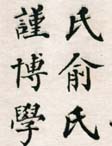 氏俞氏
謹博學